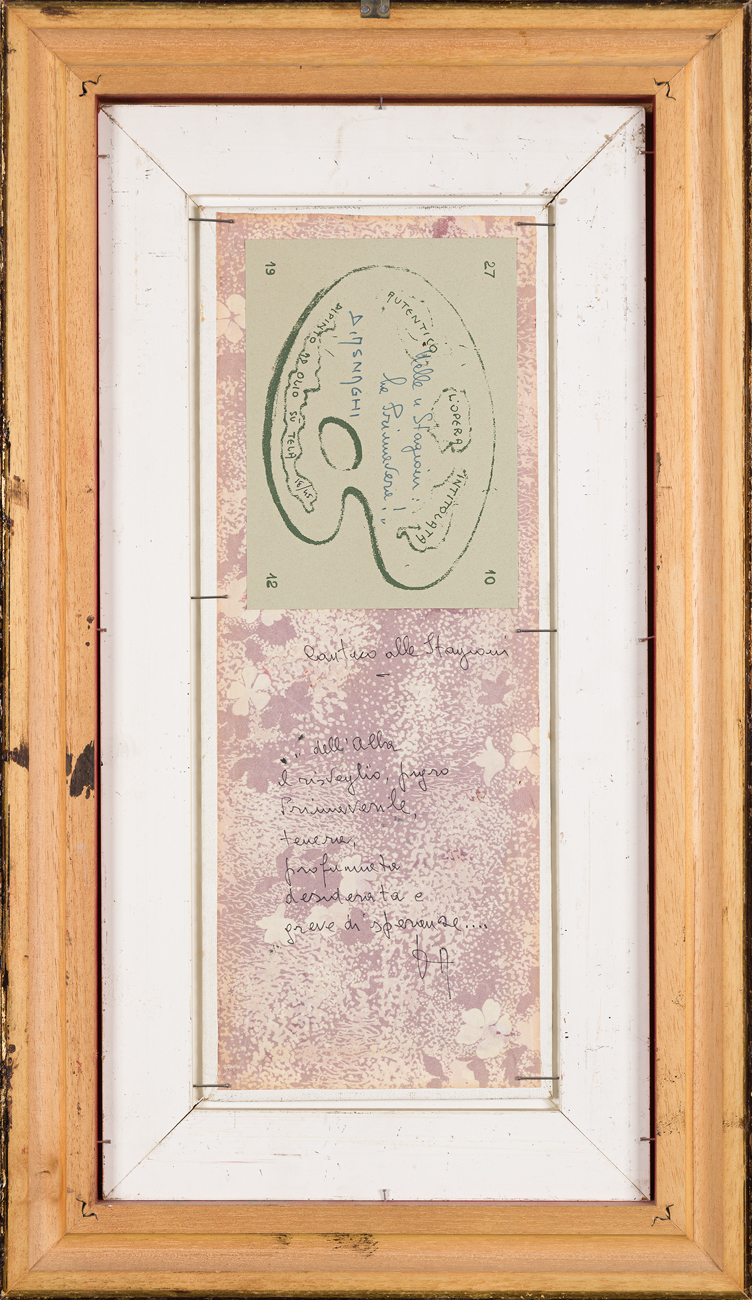 27 10
AUTENTICO L'OPERA INTITOLATA
Stagioni:
la Primavera!
DI ASNAGHI
DIPINTO AD OLIO SU TELA
19 12
Cantico alle Stagioni
„dell'Alba
il risveglio, pigro
Primaverile,
tenera,
profumata
desiderata e
greve di speranze....